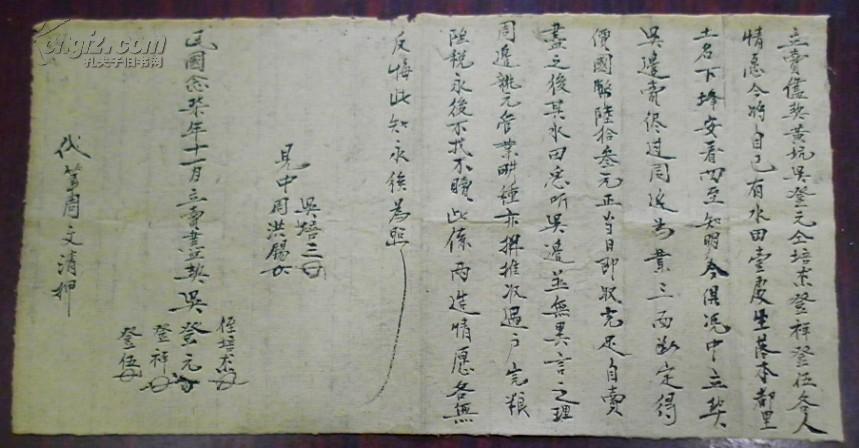 立賣儘契黄坑吳登元仝培宗登祥登伍各人
情愿今將自己有水田壹處坐落本都里
土名下垟安着四至知明今俱浼中立契
吳邊賣侭过周邊為業三面断定得
價國幣陸拾叁元正当日即收完足自賣
盡之後其水田悉听吳邊並無異言之理
周邊執元管業畊種亦推收過户完粮
陸税永後不找不贖此係两造情愿各無
反悔此知永後為照
吳培三
見中周洪賜
民國念柒年十一月立賣盡契吳登元
侄培宗
登祥
登伍
代筆周文清押
gujiz.com
孔夫子旧书网